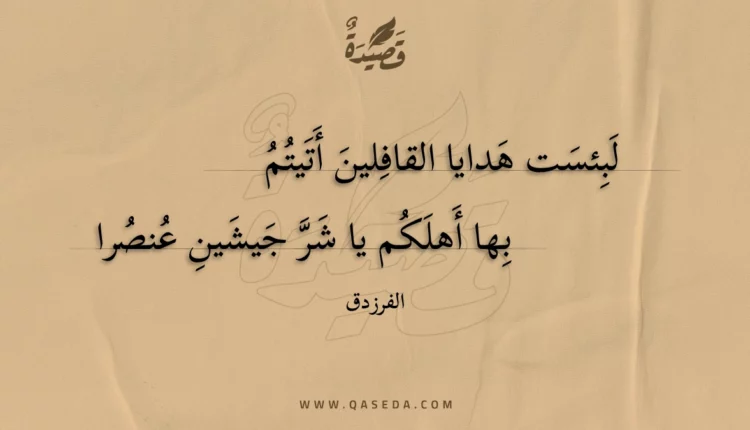 قَصِيْدَةٌ
لَبِئسَت هَدايا القافِلينَ أَتَيتُمُ
بِها أَهلَكُم يا شَرَّ جَيشَينِ عُنصُرا
الفرزدق
WWW.QASEDA.COM